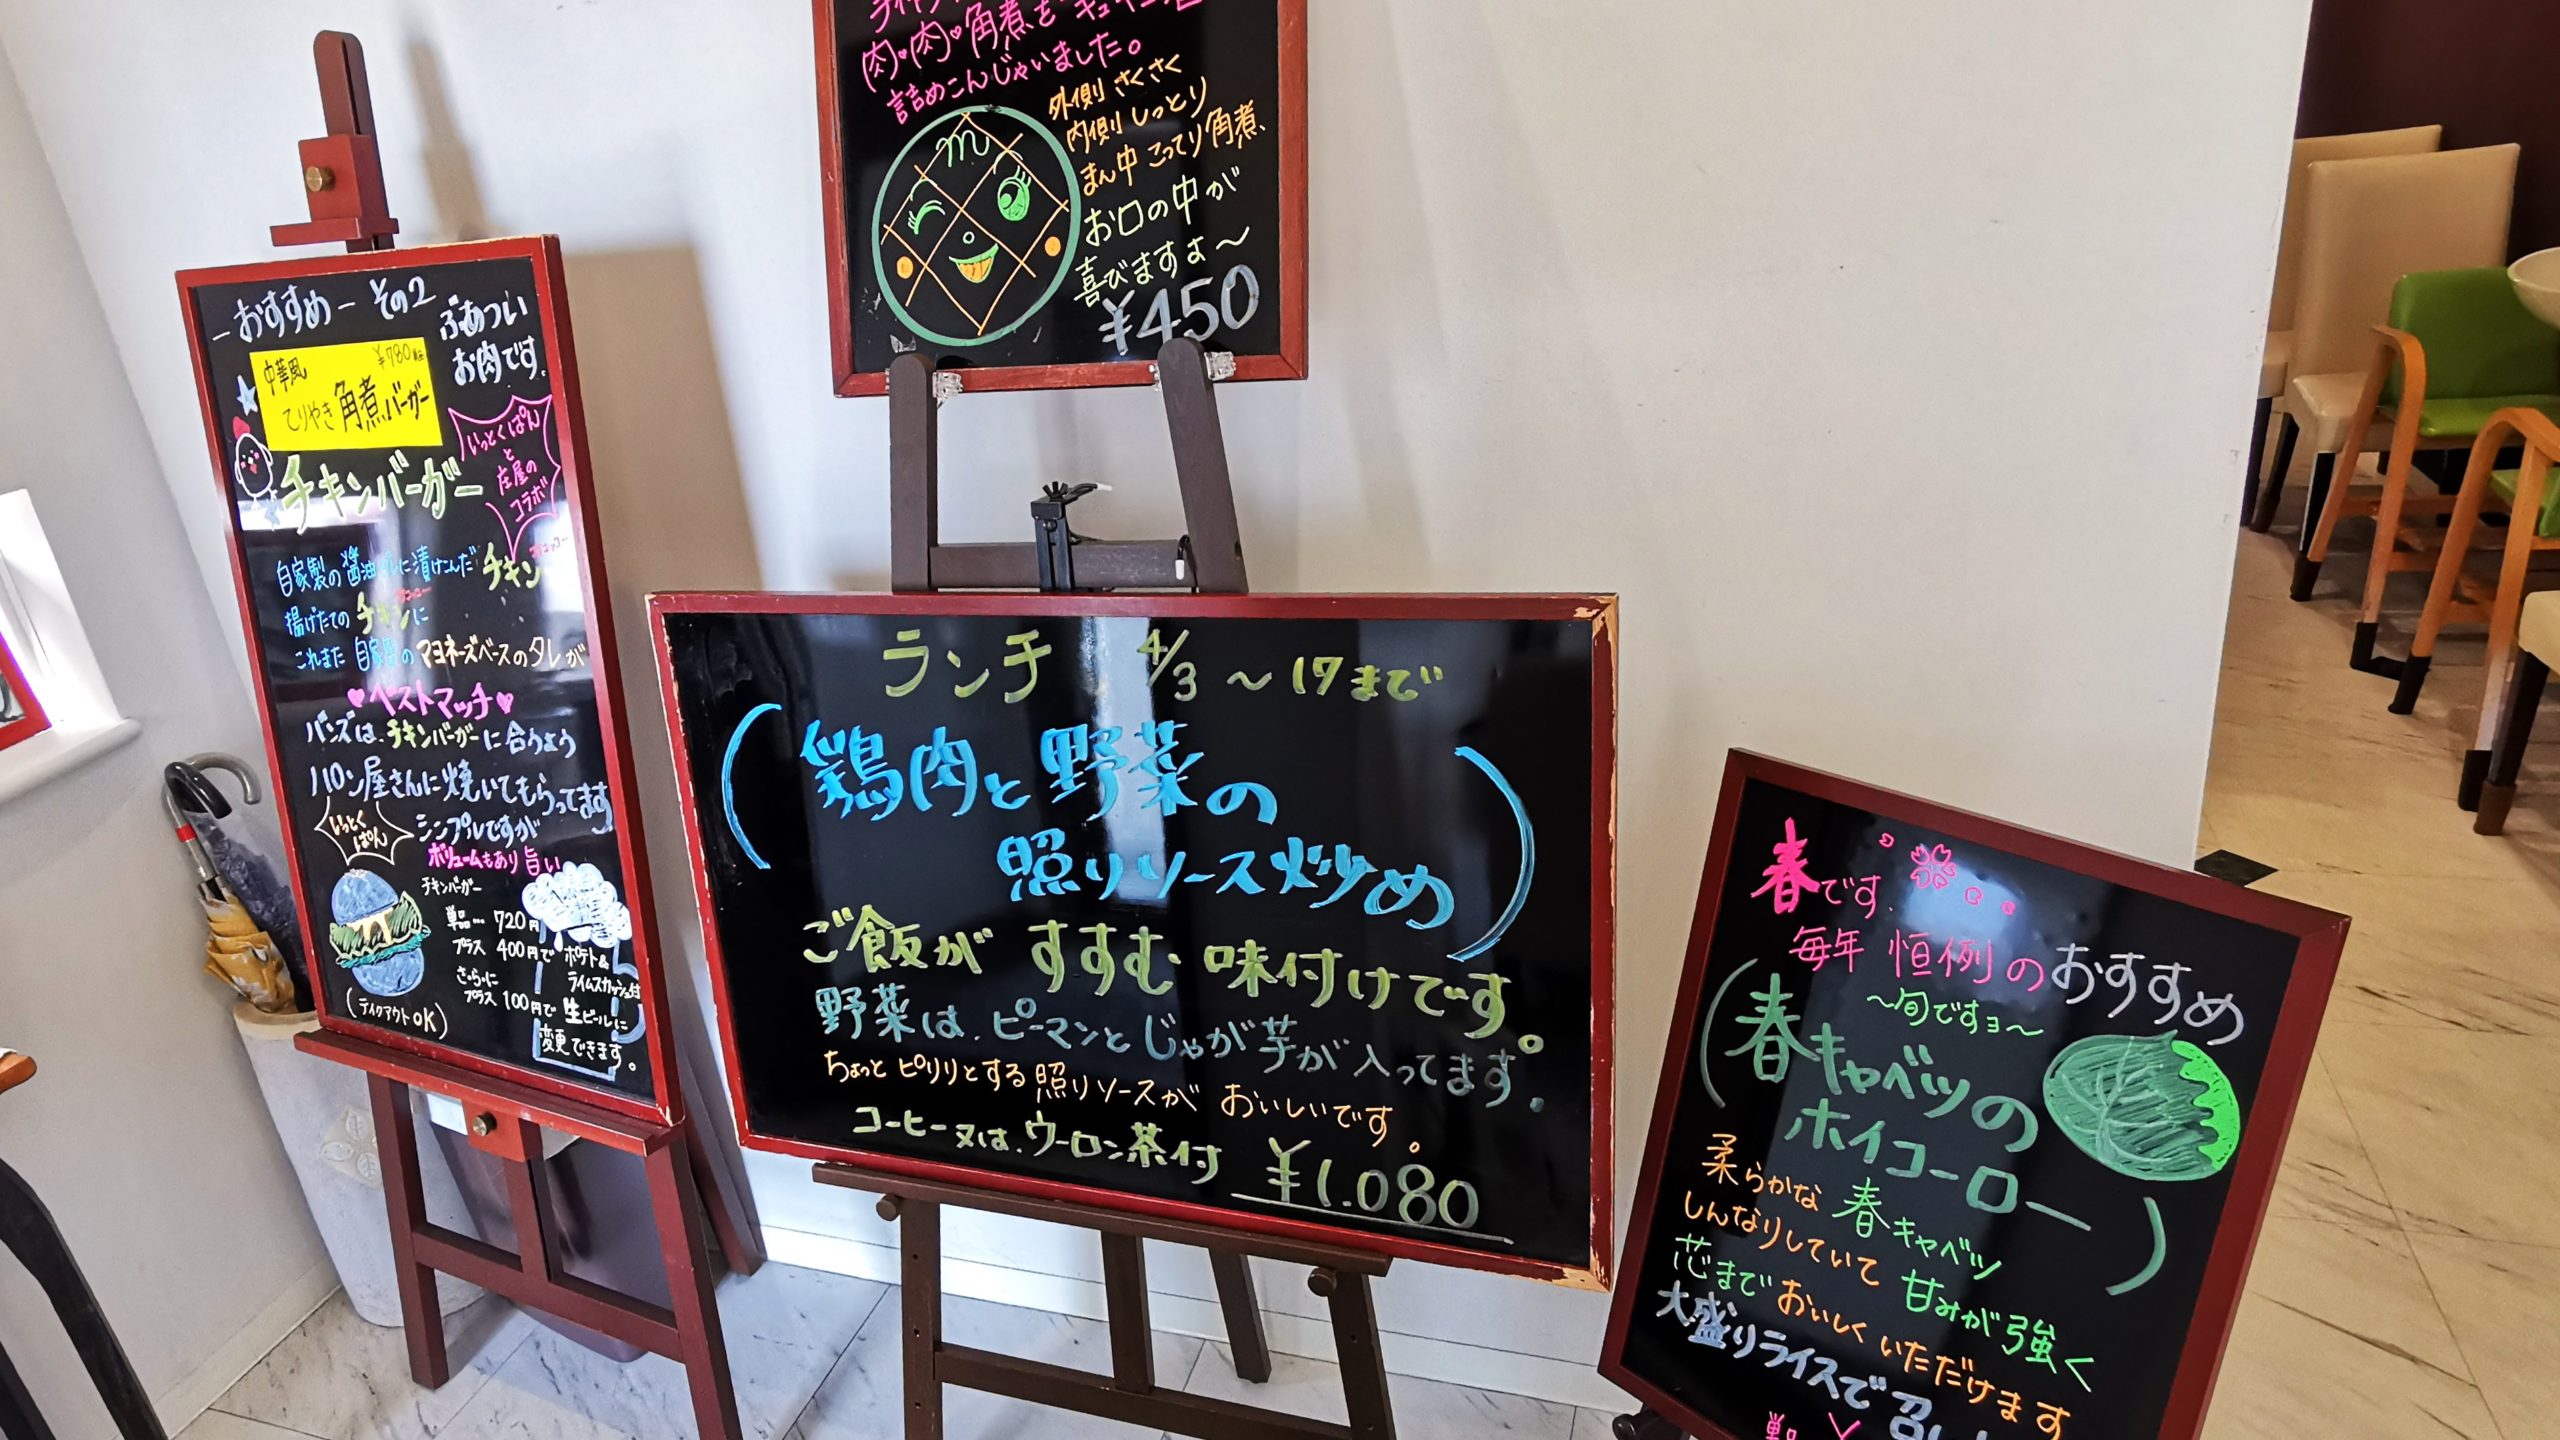 －おすすめ－ その2
ぶあつい
お肉です。
中華風 ¥780
てりやき角煮バーガー
いっとくぱん
と
庄屋の
コラボ
チキンバーガー
自家製の醤油ダレに漬けこんだチキン
揚げたてのチキンに
これまた 自家製のマヨネーズベースのタレが
♥ベストマッチ♥
バンズは、チキンバーガーに合うよう
パン屋さんに焼いてもらってます
いっとく
ぱん
シンプルですが
ボリュームもあり旨い
チキンバーガー
単品… 720円
プラス 400円で ポテト&
ライムスカッシュ付
さらに
プラス 100円で 生ビールに
変更できます。
(テイクアウトOK)
肉・肉・角煮を
詰めこんじゃいました。
外側 さくさく
内側 しっとり
まん中 こってり角煮
お口の中が
喜びますよ〜
¥450
m
ランチ 4/3 〜 17まで
(鶏肉と野菜の
照りソース炒め)
ご飯が すすむ 味付けです。
野菜は、ピーマンと じゃが芋が 入ってます。
ちょっと ピリリとする 照りソースが おいしいです。
コーヒー又は、ウーロン茶付 ¥1.080
春です。
毎年 恒例のおすすめ
〜旬ですョ〜
(春キャベツの
ホイコーロー)
柔らかな 春キャベツ
しんなりしていて 甘みが強く
芯まで おいしく いただけます
大盛りライスで